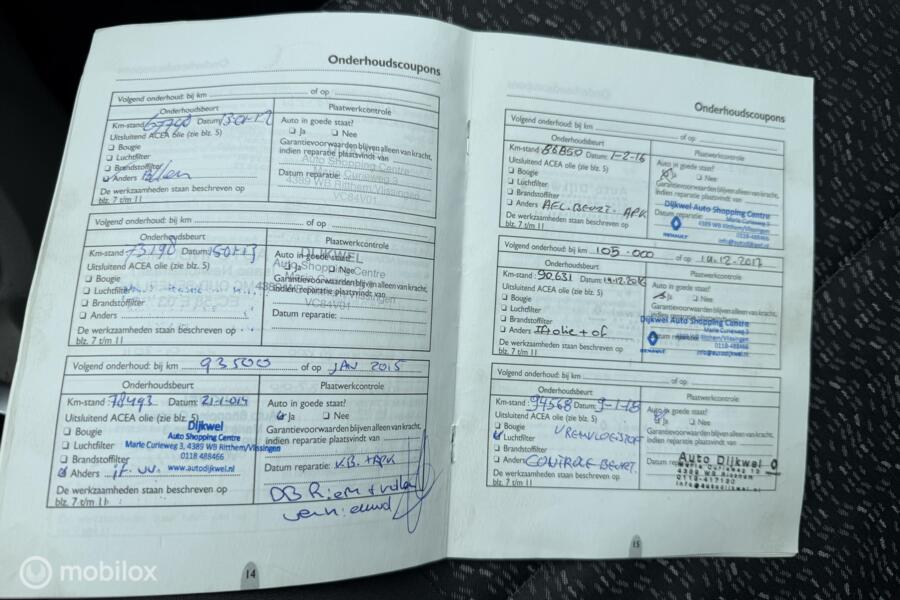 Onderhoudscoupons
Volgend onderhoud: bij km of op
Onderhoudsbeurt
Km-stand Datum:
Uitsluitend ACEA olie (zie blz. 5)
Bougie
Luchtfilter
Brandstoffilter
Anders
De werkzaamheden staan beschreven op
blz. 7 t/m 11
Plaatwerkcontrole
Auto in goede staat?
Ja Nee
Garantievoorwaarden blijven alleen van kracht,
indien reparatie plaatsvindt van
Auto Shopping Centre
4389 WB Ritthem/Vlissingen
VC84V01
Datum reparatie:
Volgend onderhoud: bij km of op
Onderhoudsbeurt
Km-stand 73198 Datum:
Uitsluitend ACEA olie (zie blz. 5)
Bougie
Luchtfilter
Brandstoffilter
Anders
De werkzaamheden staan beschreven op
blz. 7 t/m 11
Plaatwerkcontrole
DIJKWEL
Auto in goede staat?
Auto Shopping Centre
Ja Nee
Garantievoorwaarden blijven alleen van kracht,
indien reparatie plaatsvindt van
VC84V01
Datum reparatie:
Volgend onderhoud: bij km 93500 of op JAN 2015
Onderhoudsbeurt
Km-stand: 78493 Datum: 21-1-014
Uitsluitend ACEA olie (zie blz. 5)
Bougie
Luchtfilter
Brandstoffilter
Anders
De werkzaamheden staan beschreven op
blz. 7 t/m 11
Dijkwel
Auto Shopping Centre
Marie Curieweg 3, 4389 WB Ritthem/Vlissingen
0118 488466
www.autodijkwel.nl
Plaatwerkcontrole
Auto in goede staat?
Ja Nee
Garantievoorwaarden blijven alleen van kracht,
indien reparatie plaatsvindt van
Datum reparatie: K.B. + APK
DB Riem + rollen
vernieuwd
14
Onderhoudscoupons
Volgend onderhoud: bij km of op
Onderhoudsbeurt
Km-stand: 86850 Datum: 1-2-16
Uitsluitend ACEA olie (zie blz. 5)
Bougie
Luchtfilter
Brandstoffilter
Anders AFL. BEURT. APK
De werkzaamheden staan beschreven op
blz. 7 t/m 11
Plaatwerkcontrole
Auto in goede staat?
Ja Nee
Garantievoorwaarden blijven alleen van kracht,
indien reparatie plaatsvindt van
Dijkwel Auto Shopping Centre
Marie Curieweg 3
4389 WB Ritthem/Vlissingen
0118-488466
info@autodijkwel.nl
Datum reparatie:
RENAULT
Volgend onderhoud: bij km 105.000 of op 19.12.2017
Onderhoudsbeurt
Km-stand: 90.631 Datum: 19.12.2016
Uitsluitend ACEA olie (zie blz. 5)
Bougie
Luchtfilter
Brandstoffilter
Anders
De werkzaamheden staan beschreven op
blz. 7 t/m 11
Plaatwerkcontrole
Auto in goede staat?
Ja Nee
Garantievoorwaarden blijven alleen van kracht,
indien reparatie plaatsvindt van
Dijkwel Auto Shopping Centre
Marie Curieweg 3
4389 WB Ritthem/Vlissingen
0118-488466
info@autodijkwel.nl
RENAULT
Volgend onderhoud: bij km of op
Onderhoudsbeurt
Km-stand: 94568 Datum: 9-1-18
Uitsluitend ACEA olie (zie blz. 5)
Bougie
Luchtfilter
Brandstoffilter
Anders CONTROLE BEURT.
De werkzaamheden staan beschreven op
blz. 7 t/m 11
Plaatwerkcontrole
Auto in goede staat?
Ja Nee
Garantievoorwaarden blijven alleen van kracht,
indien reparatie plaatsvindt van
Auto Dijkwel
info@autodijkwel.nl
15
mobilox